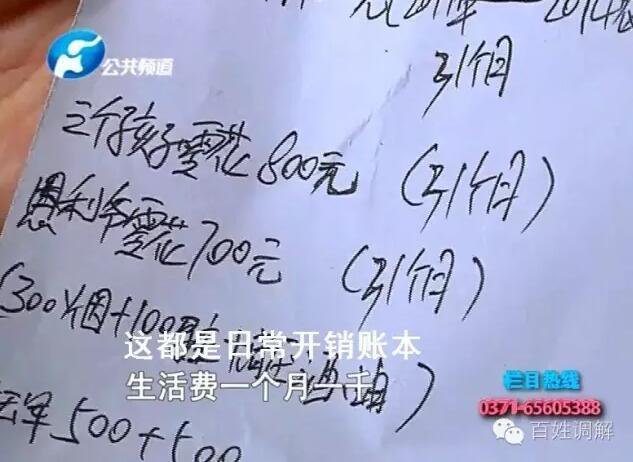 公共频道
31个月
三个孩子零花800元 (31个月)
恩利爷零花700元 (31个月)
(300烟+100
这都是日常开销账本
生活费一个月一千
栏目热线
0371-65605388
500+500
百姓调解